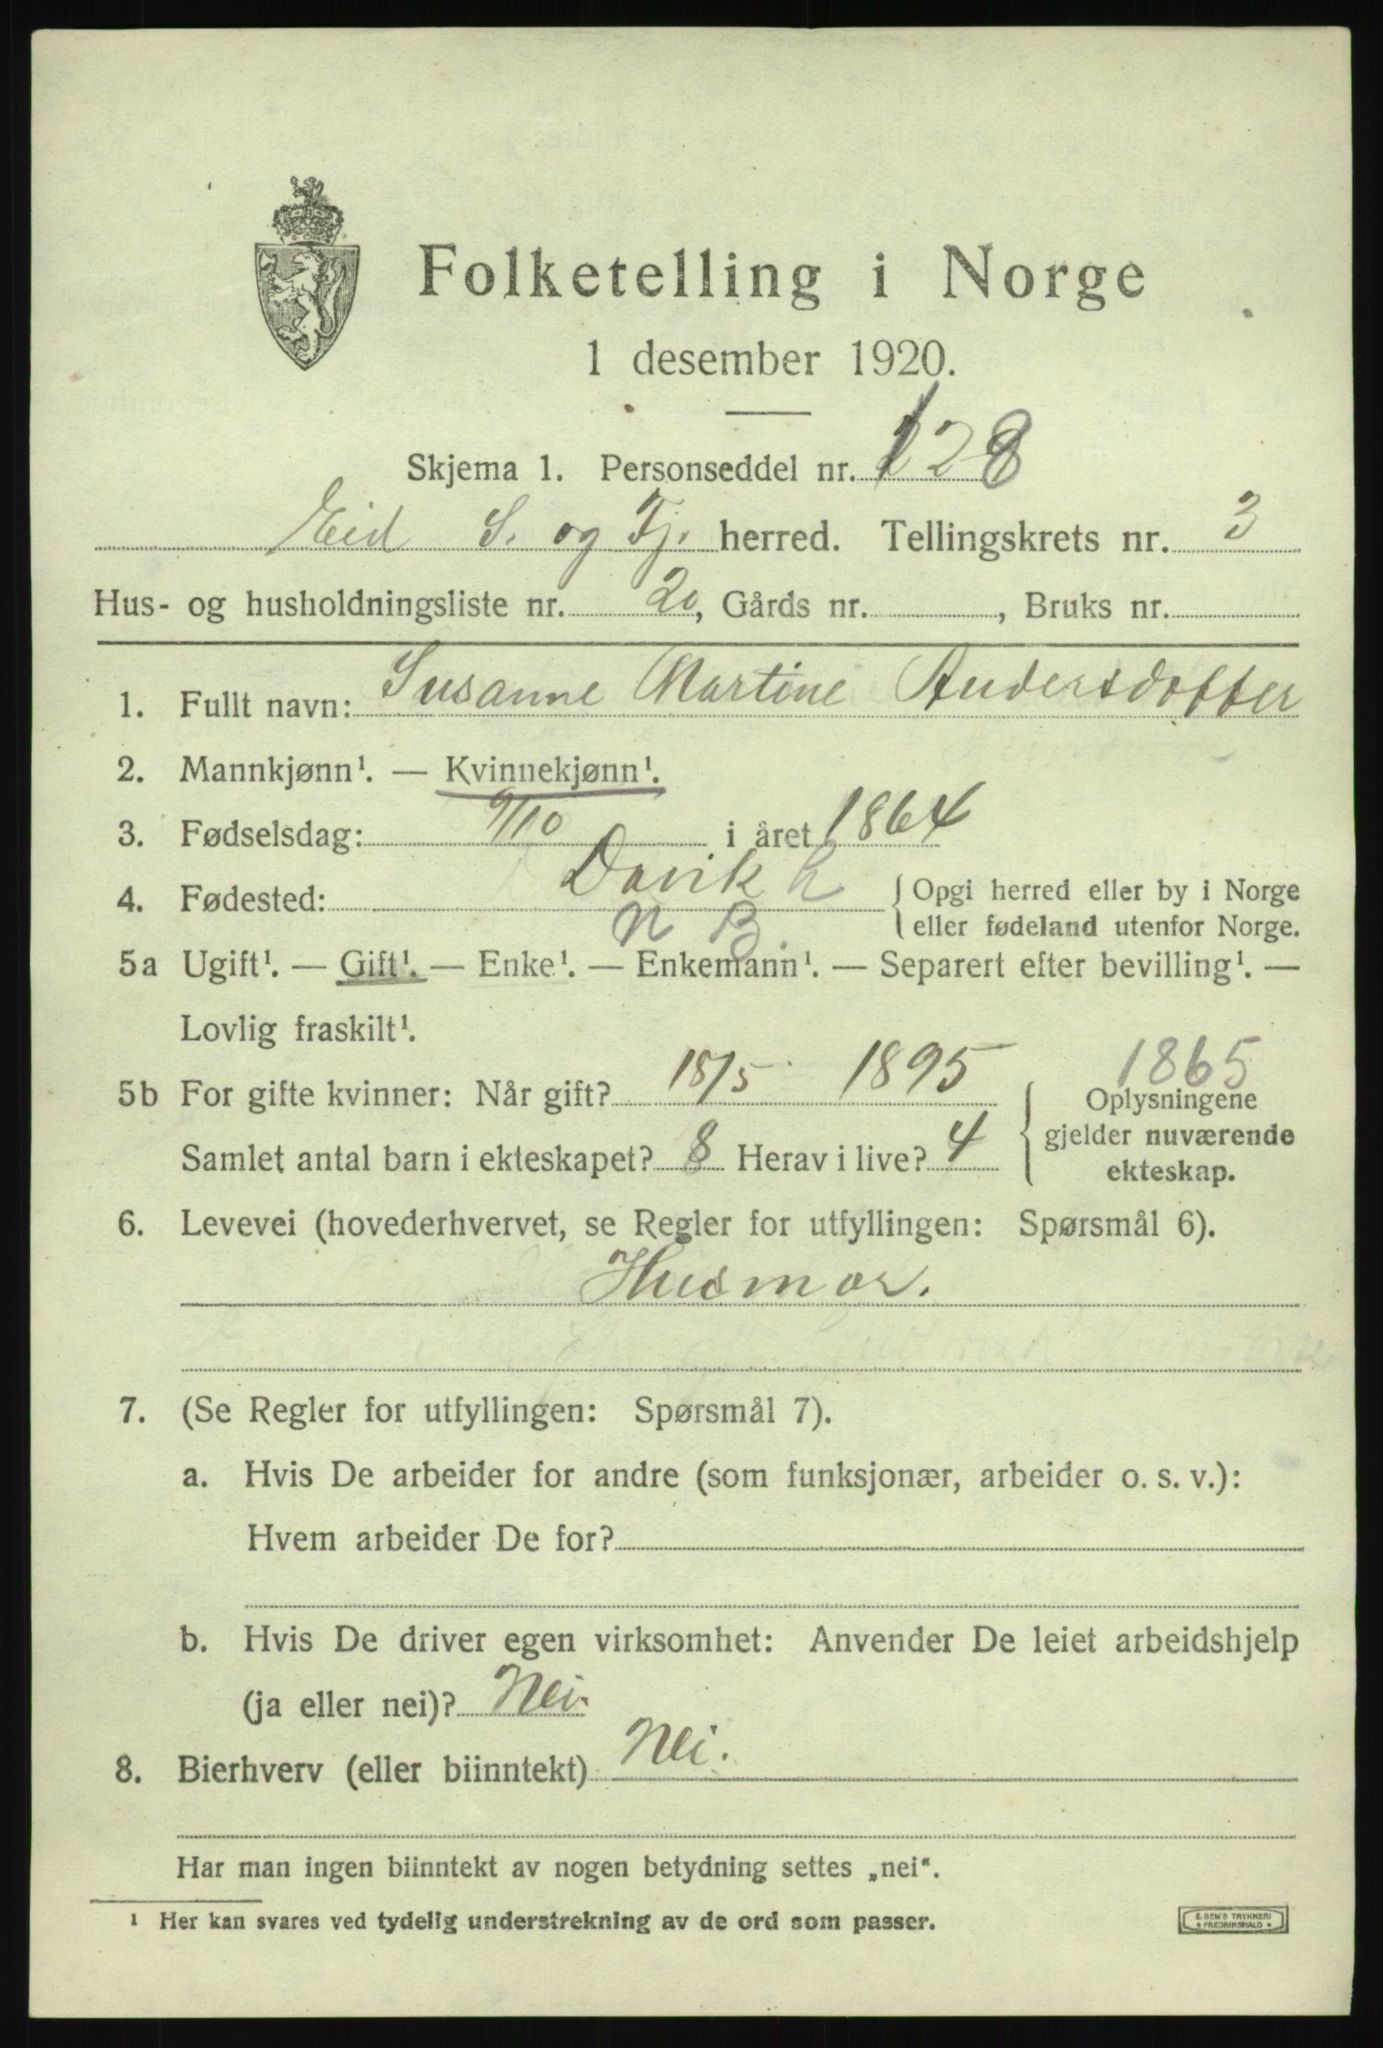 Folketelling i Norge
1 desember 1920.
Skjema 1. Personseddel nr. 128
Eid S. og Fj. herred. Tellingskrets nr. 3
Hus- og husholdningsliste nr. 20, Gårds nr. , Bruks nr.
1. Fullt navn: Susanne Martine Andersdotter
2. Mannkjønn¹. — Kvinnekjønn¹.
3. Fødselsdag: 9/10 i året 1864
4. Fødested: Davik h { Opgi herred eller by i Norge
N B. eller fødeland utenfor Norge.
5a Ugift¹. — Gift¹. — Enke¹. — Enkemann¹. — Separert efter bevilling¹. —
Lovlig fraskilt¹.
1865
5b For gifte kvinner: Når gift? 18/5 1895 { Oplysningene
gjelder nuværende
Samlet antal barn i ekteskapet? 8 Herav i live? 4
ekteskap.
6. Levevei (hovederhvervet, se Regler for utfyllingen: Spørsmål 6).
Husmor.
7. (Se Regler for utfyllingen: Spørsmål 7).
a. Hvis De arbeider for andre (som funksjonær, arbeider o. s. v.):
Hvem arbeider De for?
b. Hvis De driver egen virksomhet: Anvender De leiet arbeidshjelp
(ja eller nei)? Nei.
8. Bierhverv (eller biinntekt) Nei.
Har man ingen biinntekt av nogen betydning settes „nei“.
¹ Her kan svares ved tydelig understrekning av de ord som passer.
E. SEM'S TRYKKERI
* FREDRIKSHALD *